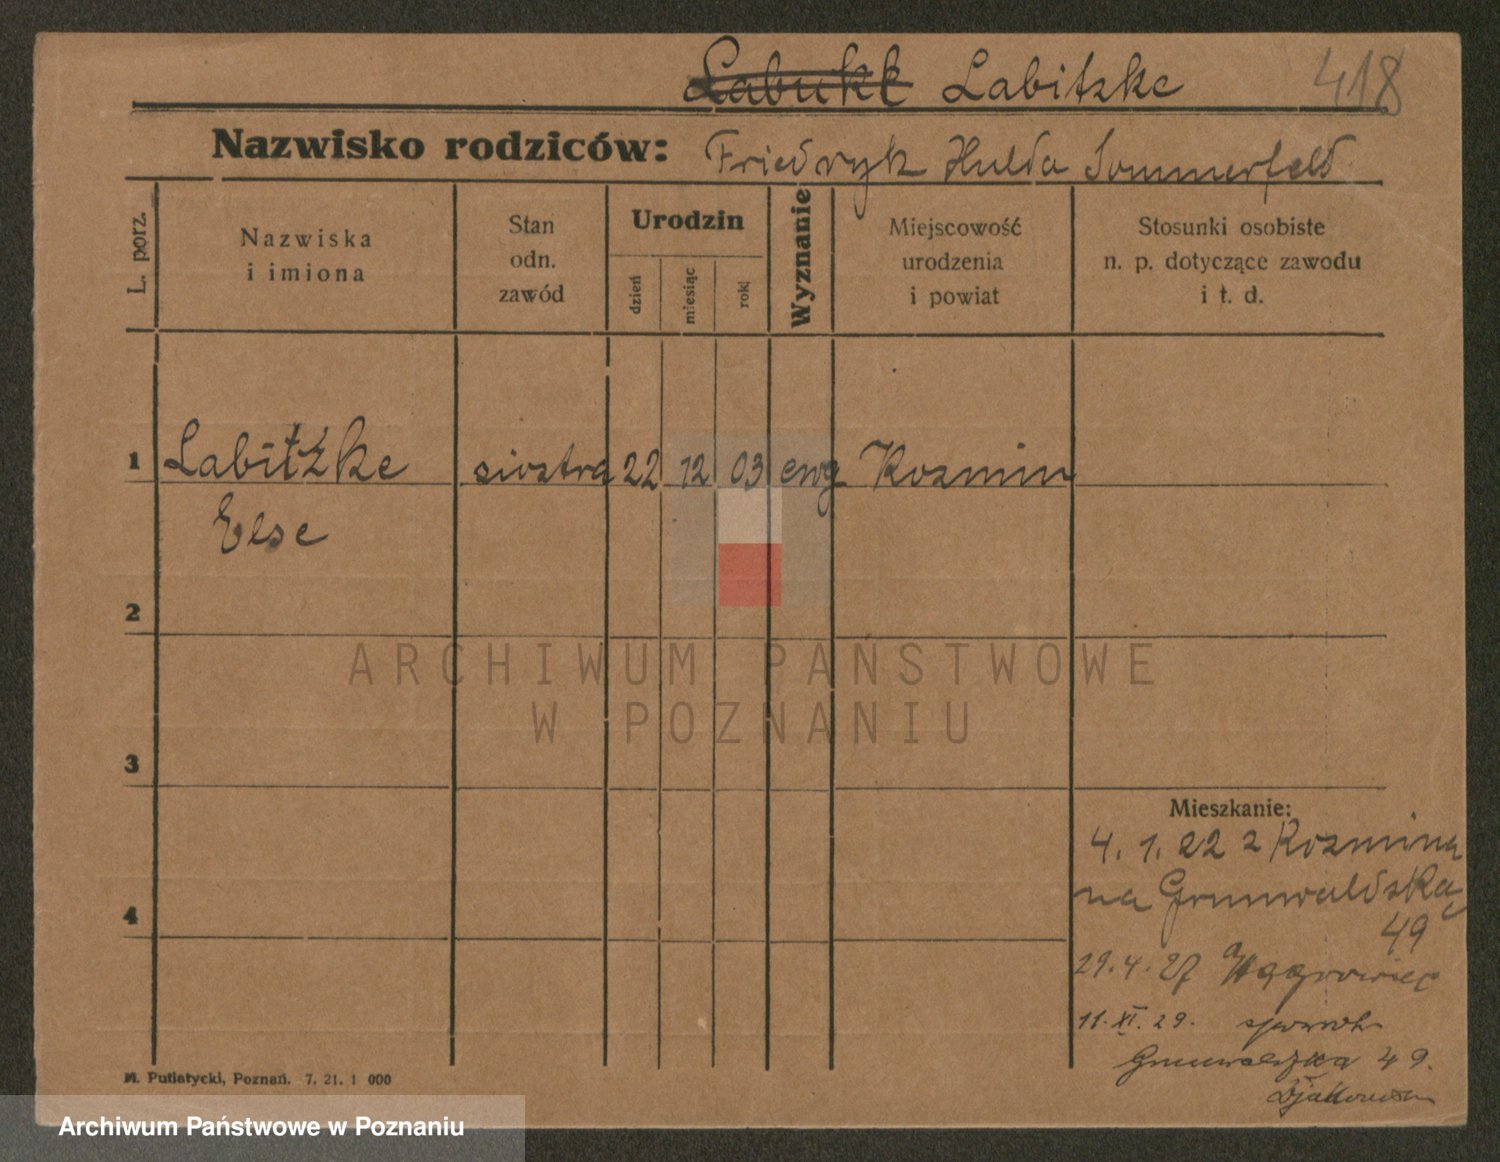 Labukk Labitzke 418
Nazwisko rodziców: Friedryk Hulda Sommerfeld
L. porz.
Nazwiska
i imiona
Stan
odn.
zawód
Urodzin
dzień
miesiąc
rok
Wyznanie
Miejscowość
urodzenia
i powiat
Stosunki osobiste
n. p. dotyczące zawodu
i t. d.
1 Labitzke siostra 22 12 03 ewg Kozmin
Else
2
ARCHIWUM PAŃSTWOWE
W POZNANIU
3
Mieszkanie:
4. 1. 22 z Kozmina
na Grunwaldską
49
4
29. 4. 27 Wągrowiec
11. XI. 29.
Grunwaldzka 49.
M. Putiatycki, Poznań. 7. 21. 1 000
Archiwum Państwowe w Poznaniu